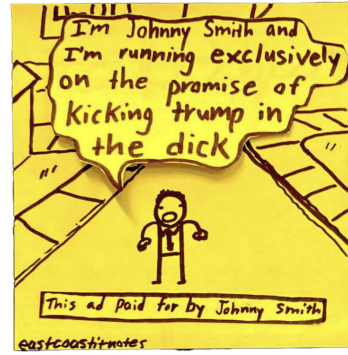 I'm Johnny Smith and
I'm running exclusively
on the promise of
kicking trump in
the dick
This ad paid for by Johnny Smith
eastcoastitnotes